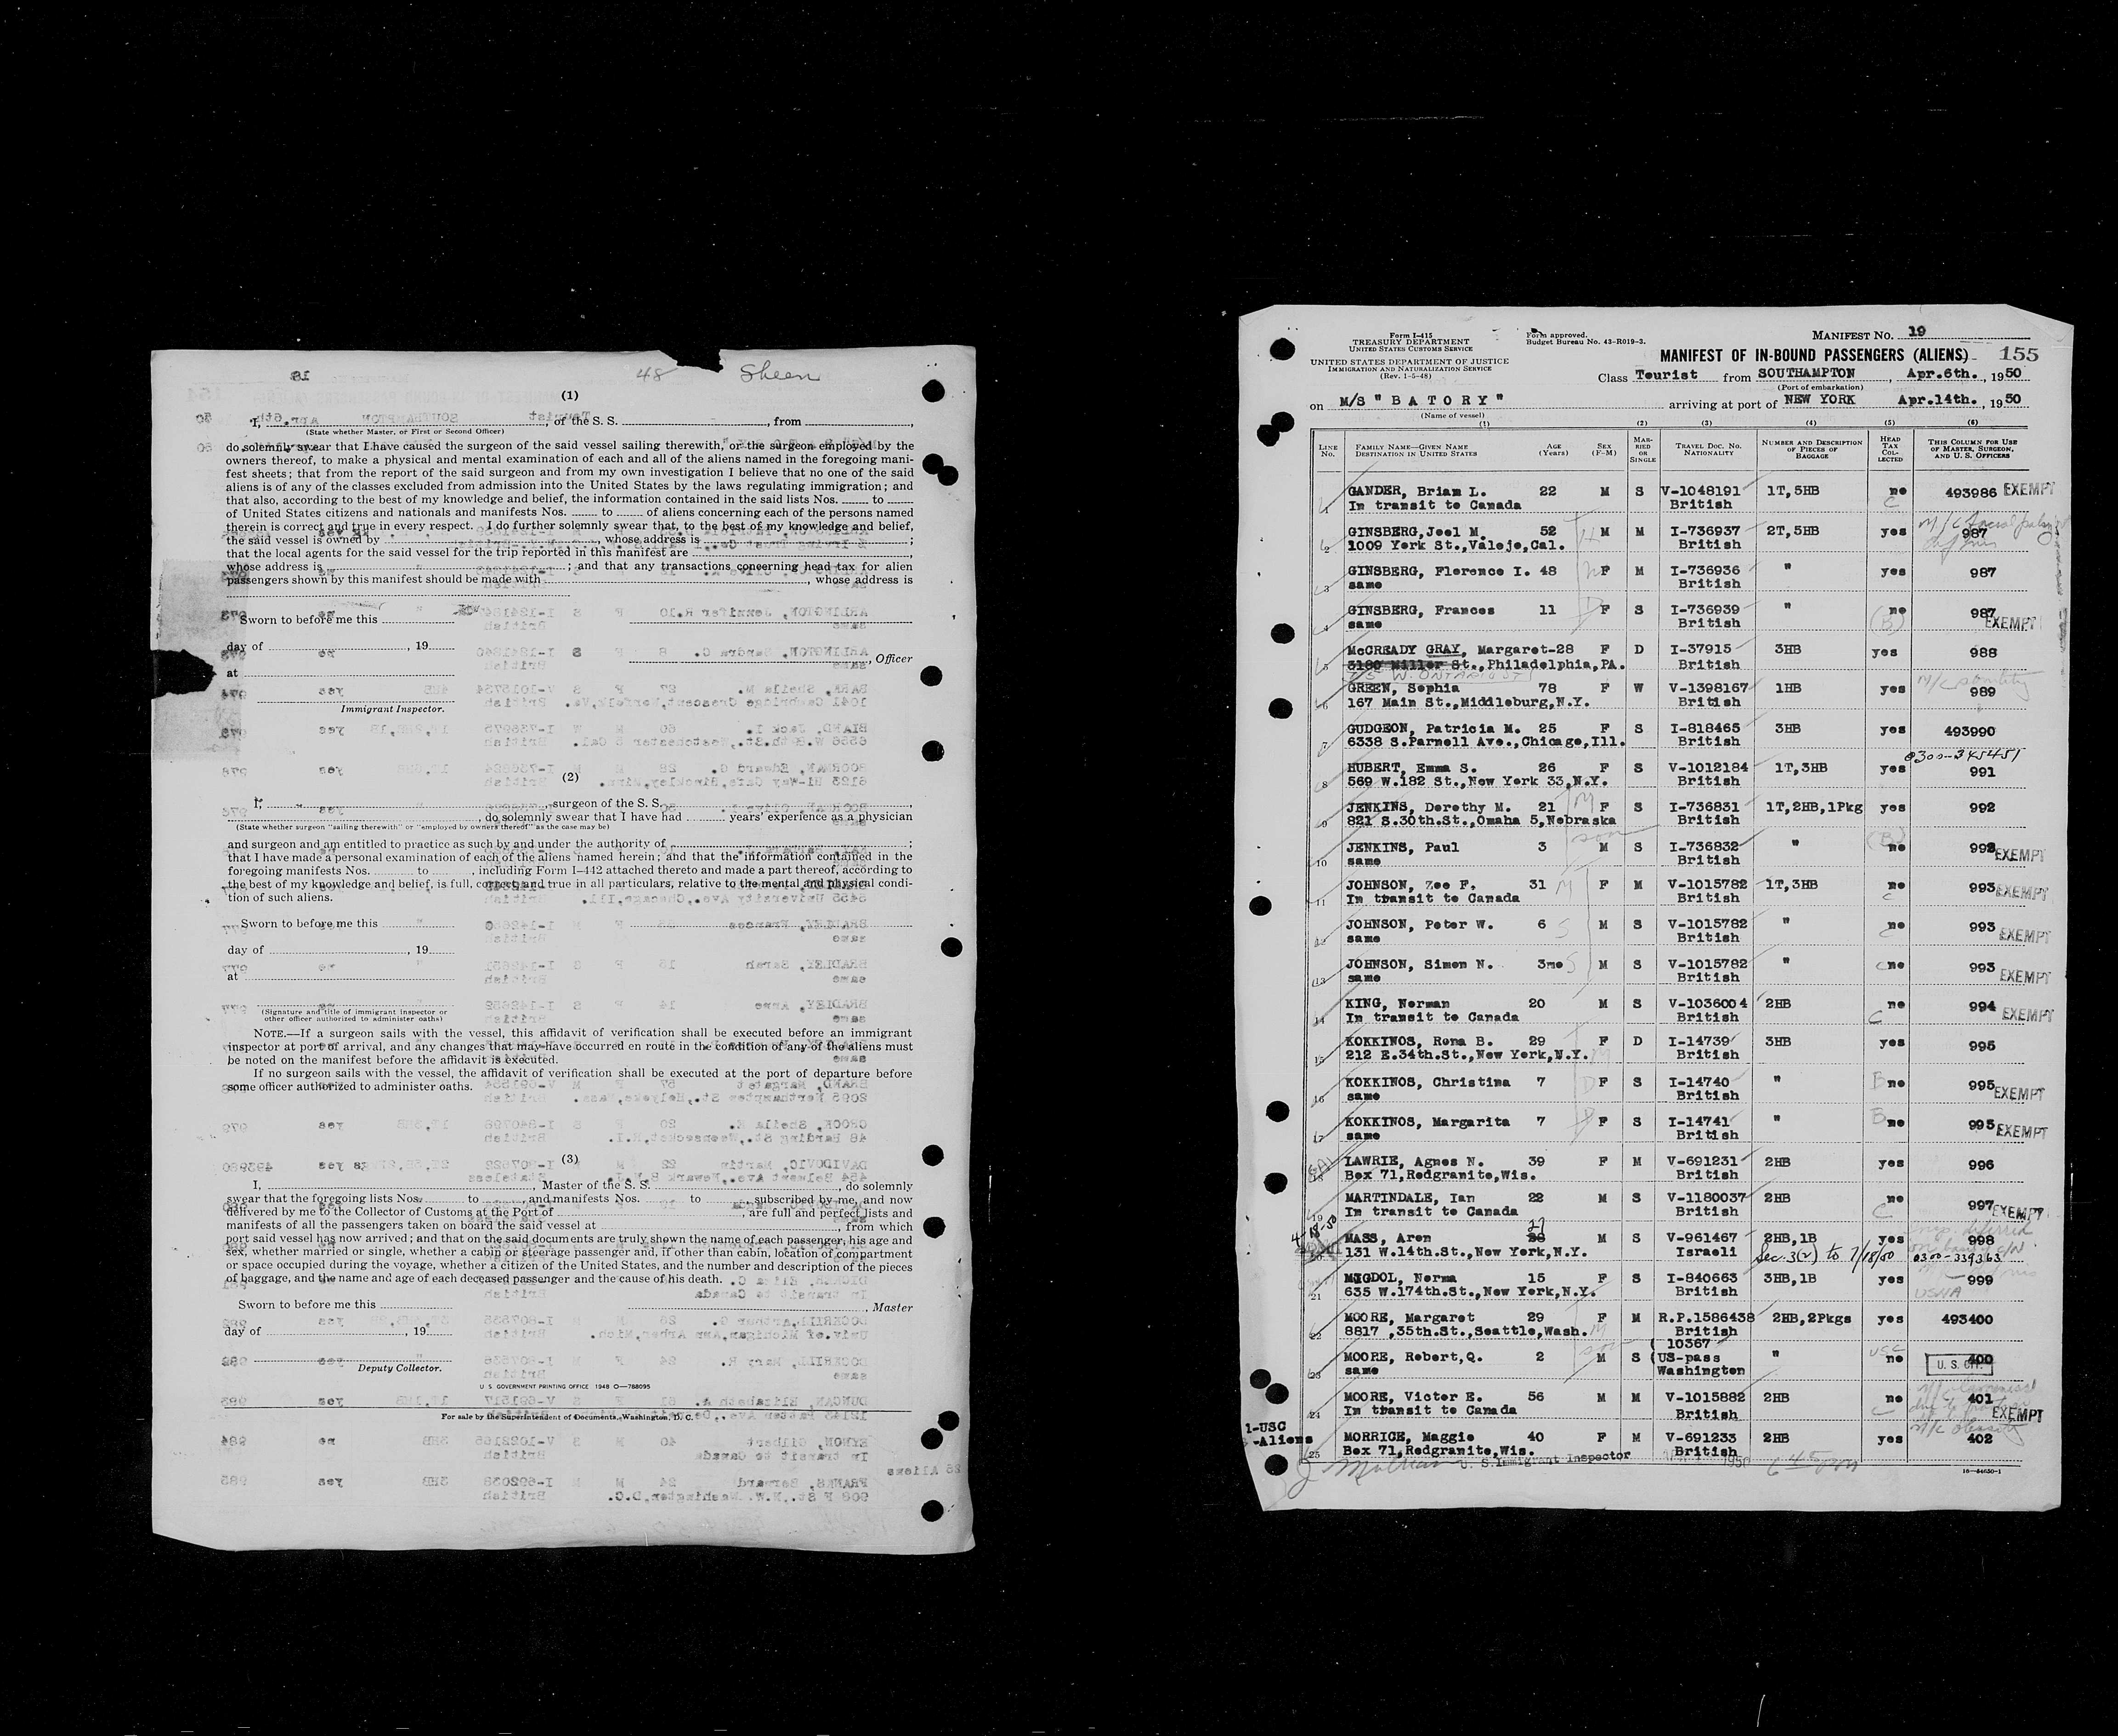 48 Sheen
(1)
I, , of the S. S. , from ,
(State whether Master, or First or Second Officer)
do solemnly swear that I have caused the surgeon of the said vessel sailing therewith, or the surgeon employed by the
owners thereof, to make a physical and mental examination of each and all of the aliens named in the foregoing mani-
fest sheets; that from the report of the said surgeon and from my own investigation I believe that no one of the said
aliens is of any of the classes excluded from admission into the United States by the laws regulating immigration; and
that also, according to the best of my knowledge and belief, the information contained in the said lists Nos. to
of United States citizens and nationals and manifests Nos. to of aliens concerning each of the persons named
therein is correct and true in every respect. I do further solemnly swear that, to the best of my knowledge and belief,
the said vessel is owned by , whose address is ;
that the local agents for the said vessel for the trip reported in this manifest are ,
whose address is ; and that any transactions concerning head tax for alien
passengers shown by this manifest should be made with , whose address is
Sworn to before me this
day of , 19
, Officer
at
Immigrant Inspector.
(2)
I, , surgeon of the S. S. ,
, do solemnly swear that I have had years' experience as a physician
(State whether surgeon "sailing therewith" or "employed by owners thereof" as the case may be)
and surgeon and am entitled to practice as such by and under the authority of ;
that I have made a personal examination of each of the aliens named herein; and that the information contained in the
foregoing manifests Nos. to , including Form I-442 attached thereto and made a part thereof, according to
the best of my knowledge and belief, is full, correct and true in all particulars, relative to the mental and physical condi-
tion of such aliens.
Sworn to before me this
day of , 19
at
(Signature and title of immigrant inspector or
other officer authorized to administer oaths)
NOTE.—If a surgeon sails with the vessel, this affidavit of verification shall be executed before an immigrant
inspector at port of arrival, and any changes that may have occurred en route in the condition of any of the aliens must
be noted on the manifest before the affidavit is executed.
If no surgeon sails with the vessel, the affidavit of verification shall be executed at the port of departure before
some officer authorized to administer oaths.
(3)
I, , Master of the S. S. , do solemnly
swear that the foregoing lists Nos. to , and manifests Nos. to , subscribed by me, and now
delivered by me to the Collector of Customs at the Port of , are full and perfect lists and
manifests of all the passengers taken on board the said vessel at , from which
port said vessel has now arrived; and that on the said documents are truly shown the name of each passenger, his age and
sex, whether married or single, whether a cabin or steerage passenger and, if other than cabin, location of compartment
or space occupied during the voyage, whether a citizen of the United States, and the number and description of the pieces
of baggage, and the name and age of each deceased passenger and the cause of his death.
Sworn to before me this
, Master
day of , 19
Deputy Collector.
U S GOVERNMENT PRINTING OFFICE 1948 O—788095
For sale by the Superintendent of Documents, Washington, D. C.
Form I-415
TREASURY DEPARTMENT
UNITED STATES CUSTOMS SERVICE
UNITED STATES DEPARTMENT OF JUSTICE
IMMIGRATION AND NATURALIZATION SERVICE
(Rev. 1-5-48)
Form approved.
Budget Bureau No. 43-R019-3.
MANIFEST NO. 19
MANIFEST OF IN-BOUND PASSENGERS (ALIENS) 155
Class Tourist from SOUTHAMPTON, Apr.6th., 1950
(Port of embarkation)
on M/S "BATORY" arriving at port of NEW YORK Apr.14th., 1950
(Name of vessel)
(1) (2) (3) (4) (5) (6)
LINE NO. FAMILY NAME—GIVEN NAME DESTINATION IN UNITED STATES AGE (Years) SEX (F-M) MARRIED OR SINGLE TRAVEL DOC. NO. NATIONALITY NUMBER AND DESCRIPTION OF PIECES OF BAGGAGE HEAD TAX COLLECTED THIS COLUMN FOR USE OF MASTER, SURGEON, AND U. S. OFFICERS
GANDER, Brian L. 22 M S V-1048191 1T,5HB no 493986 EXEMPT
1 In transit to Canada British C
GINSBERG,Joel M. 52 M M I-736937 2T,5HB yes 987
2 1009 York St.,Valejo,Cal. British
GINSBERG, Florence I. 48 F M I-736936 " yes 987
3 same British
GINSBERG, Frances 11 F S I-736939 " no 987 EXEMPT
4 same British (B)
McCREADY GRAY, Margaret-28 F D I-37915 3HB yes 988
5 3180 Miller St.,Philadelphia,PA. British
W. ONTARIO ST
GREEN, Sophia 78 F W V-1398167 1HB yes 989
6 167 Main St.,Middleburg,N.Y. British
GUDGEON, Patricia M. 25 F S I-818465 3HB yes 493990
7 6338 S.Parnell Ave.,Chicago,Ill. British
0300-345451
HUBERT, Emma S. 26 F S V-1012184 1T,3HB yes 991
8 569 W.182 St.,New York 33,N.Y. British
JENKINS, Dorothy M. 21 M F S I-736831 1T,2HB,1Pkg yes 992
9 821 S.30th.St.,Omaha 5,Nebraska British
son
JENKINS, Paul 3 M S I-736832 " (B) no 992 EXEMPT
10 same British
JOHNSON, Zoe F. 31 M F M V-1015782 1T,3HB no 993 EXEMPT
11 In transit to Canada British C
JOHNSON, Peter W. 6 S M S V-1015782 " no 993 EXEMPT
12 same British C
JOHNSON, Simon N. 3mo S M S V-1015782 " C no 993 EXEMPT
13 same British
KING, Norman 20 M S V-1036004 2HB no 994 EXEMPT
14 In transit to Canada British C
KOKKINOS, Rena B. 29 F D I-14739 3HB yes 995
15 212 E.34th.St.,New York,N.Y. British
KOKKINOS, Christina 7 D F S I-14740 " B no 995 EXEMPT
16 same British
KOKKINOS, Margarita 7 D F S I-14741 " B no 995 EXEMPT
17 same British
LAWRIE, Agnes N. 39 F M V-691231 2HB yes 996
18 Box 71,Redgranite,Wis. British
MARTINDALE, Ian 22 M S V-1180037 2HB no 997 EXEMPT
19 In transit to Canada British C
4-18-50
27
MASS, Aron M S V-961467 2HB,1B yes 998
20 131 W.14th.St.,New York,N.Y. Israeli Sec. 3(2) to 7/18/50 0300-339363
MIGDOL, Norma 15 F S I-840663 3HB,1B yes 999
21 635 W.174th.St.,New York,N.Y. British
MOORE, Margaret 29 F M R.P.1586438 2HB,2Pkgs yes 493400
22 8817 ,35th.St.,Seattle,Wash. M British
son 10367
MOORE, Robert,Q. 2 M S (US-pass " USC no 400 U. S. CIT.
23 same Washington
MOORE, Victor E. 56 M M V-1015882 2HB no 401 EXEMPT
24 In transit to Canada British C
1-USC
-Aliens
MORRICE, Maggie 40 F M V-691233 2HB yes 402
25 Box 71,Redgranite,Wis. British
U. S. Immigrant Inspector 1950
16—54630-1